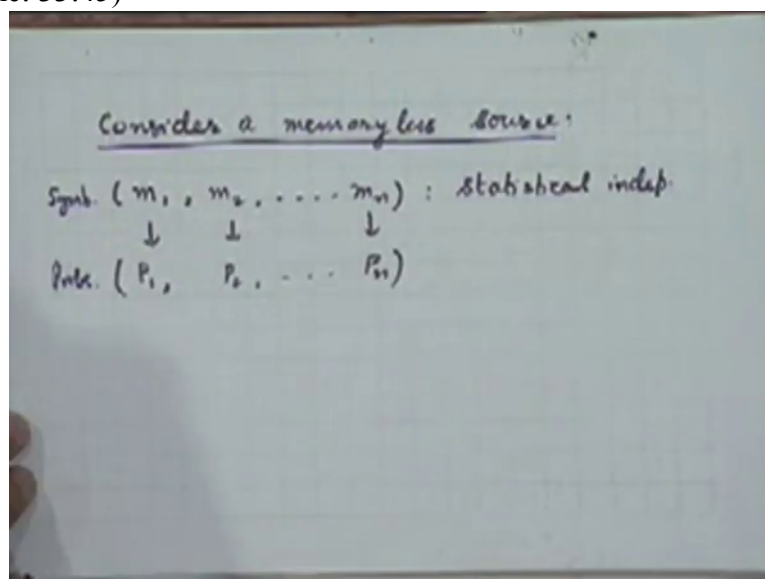 Consider a memoryless source:
Symb. (m₁, m₂, .... mₙ) : statistical indep.
↓ ↓ ↓
Prbs. (P₁, P₂, ... Pₙ)